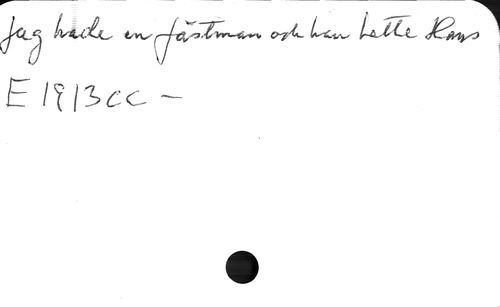 Jag hade en fästman och han hette Hans
E 1913 cc –